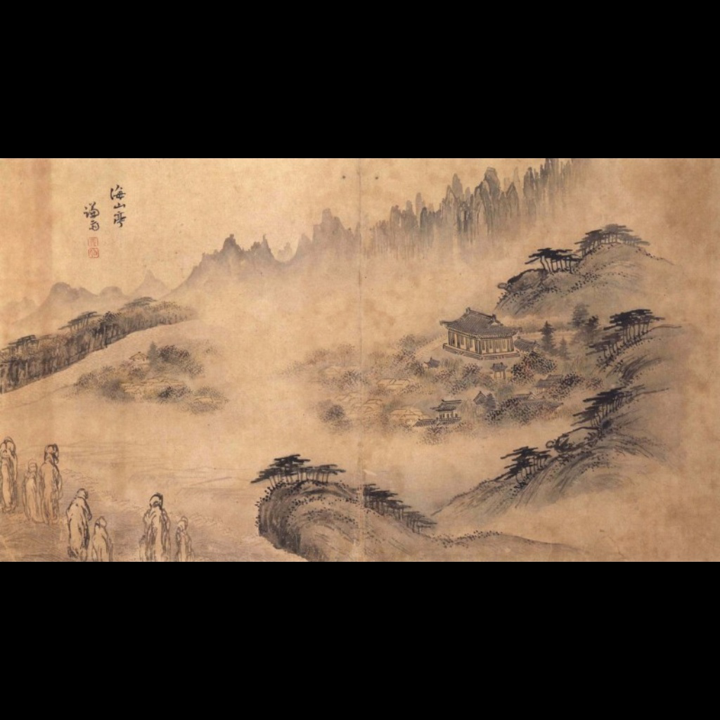 海山亭
謙齋